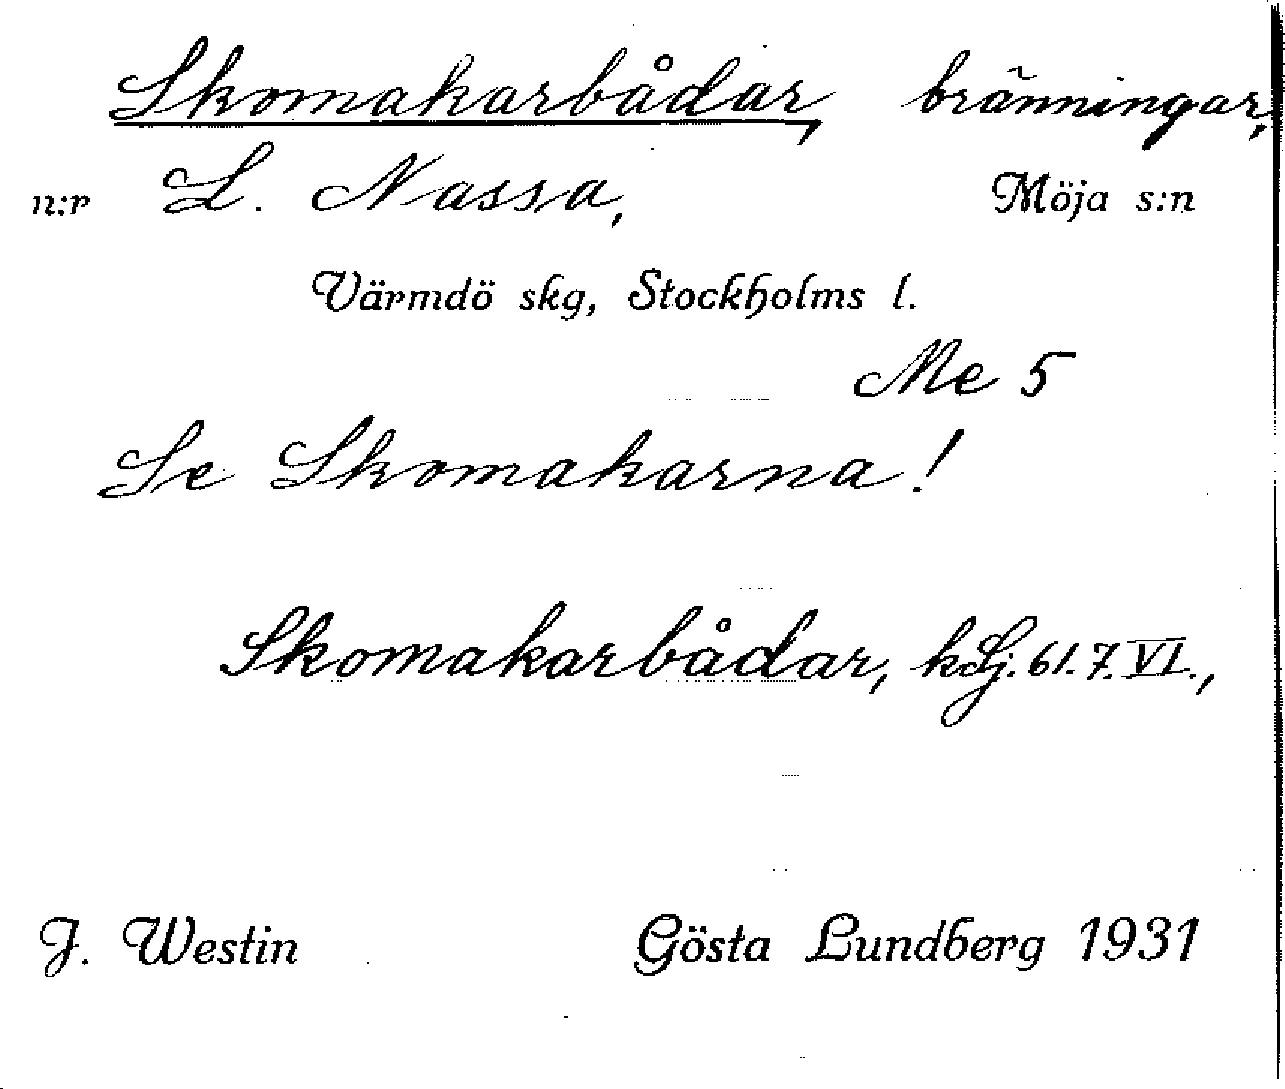 Skomakarbådar, bränningar,
n:r L. Nassa, Möja s:n
Värmdö skg, Stockholms l.
Me 5
Se Skomakarna!
Skomakarbådar, kLj. 61. 7. VI.,
J. Westin Gösta Lundberg 1931